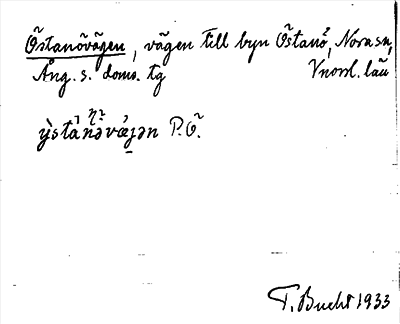 Östanövägen, vägen till byn Östanö, Nora sn,
Ång. s. doms. tg Vnorrl. län
T. Bucht 1933